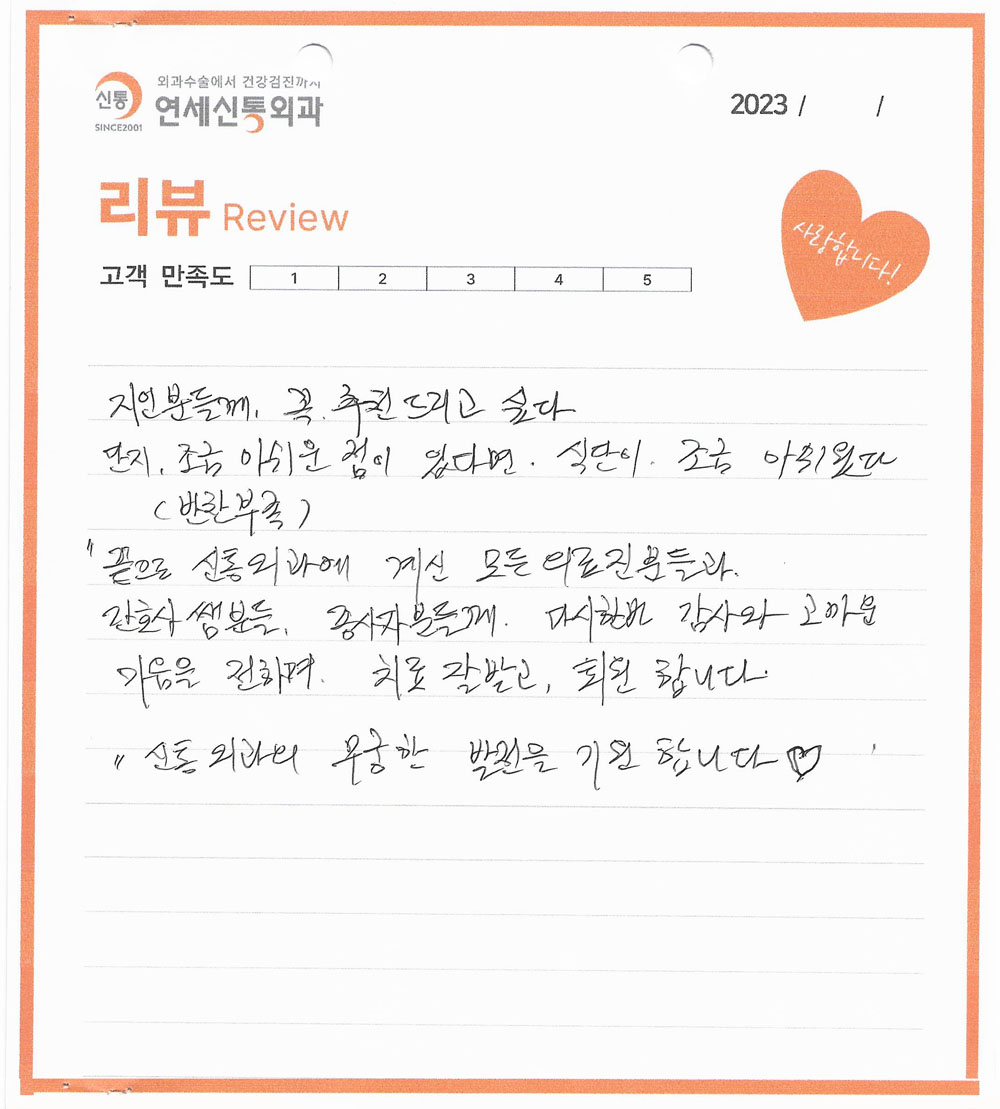 신통
SINCE2001
외과수술에서 건강검진까지
연세신통외과
2023 / /
리뷰 Review
사랑합니다!
고객 만족도 1 2 3 4 5
지인분들께, 꼭 추천드리고 싶다
단지, 조금 아쉬운 점이 있다면. 식단이. 조금 아쉬웠다
(반찬부족)
" 끝으로 신통외과에 계신 모든 의료진분들과.
간호사 쌤분들, 종사자분들께. 다시한번 감사와 고마운
마음을 전하며. 치료 잘받고, 퇴원 합니다.
" 신통외과의 무궁한 발전을 기원 합니다♡